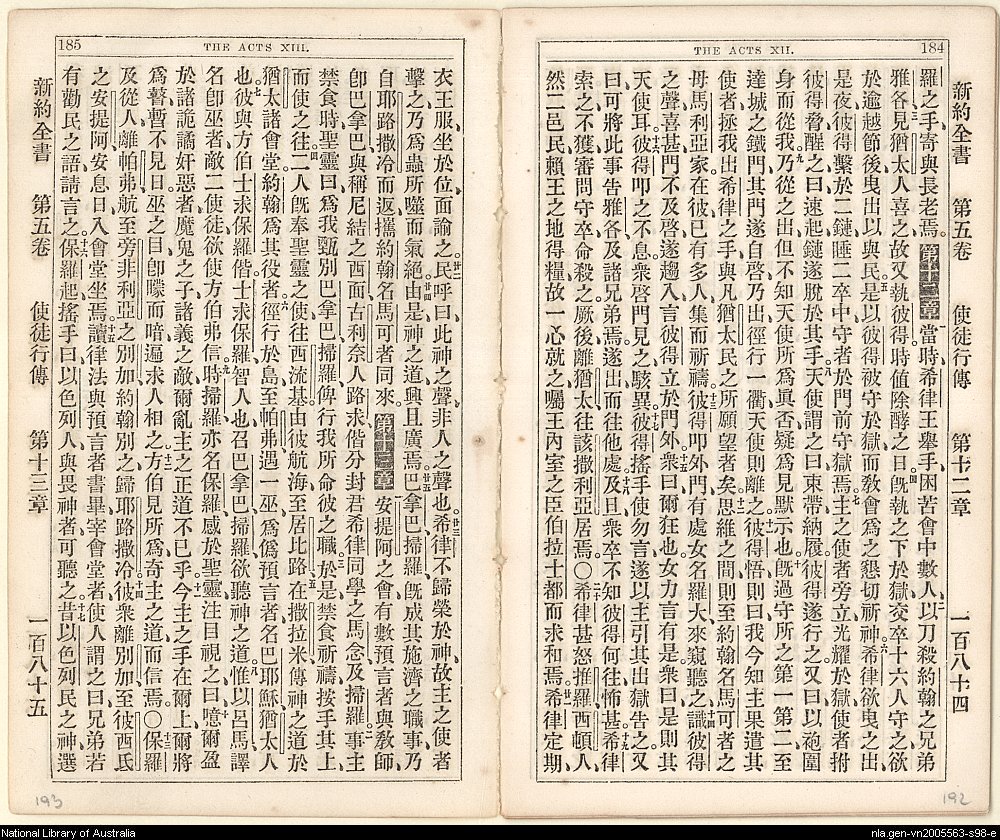 184
THE ACTS XII.
新約全書　第五卷　使徒行傳　第十二章　一百八十四
羅之手寄與長老焉第十二章當時希律王舉手困苦會中數人以刀殺約翰之兄弟
雅各見猶太人喜之故又執彼得時值除酵之日旣執之下於獄交卒十六人守之欲
於逾越節後曳出以與民是以彼得被守於獄而敎會爲之懇切祈神希律欲曳之出
是夜彼得繫於二鏈睡二卒中守者於門前守獄焉主之使者旁立光耀於獄使者拊
彼得脅醒之曰速起鏈遂脫於其手天使謂之曰束帶納履彼得遂行之又曰以袍圍
身而從我乃從之出但不知天使所爲眞否疑爲見默示也旣過守所之第一第二至
達城之鐵門其門遂自啓乃出徑行一衢天使則離之彼得悟則曰我今知主果遣其
使者拯我出希律之手與凡猶太民之所願望者矣思維之間則至約翰名馬可者之
母馬利亞家在彼已有多人集而祈禱彼得叩外門有處女名羅大來窺聽之識彼得
之聲喜甚門不及啓遂趨入言彼得立於門外衆曰爾狂也女力言有是衆曰是則其
天使耳彼得叩之不息衆啓門見之駭異彼得搖手使勿言遂以主引其出獄告之又
曰可將此事告雅各及諸兄弟焉遂出而往他處及旦衆卒不知彼得何往怖甚希律
索之不獲審問守卒命殺之厥後離猶太往該撒利亞居焉〇希律甚怒推羅西頓人
然二邑民賴王之地得糧故一心就之囑王內室之臣伯拉士都而求和焉希律定期
192
185
THE ACTS XIII.
衣王服坐於位而諭之民呼曰此神之聲非人之聲也希律不歸榮於神故主之使者
擊之乃爲蟲所噬而氣絕由是神之道興且廣焉巴拿巴掃羅旣成其施濟之職事乃
自耶路撒冷而返攜約翰名馬可者同來第十三章安提阿之會有數預言者與敎師
卽巴拿巴與稱尼結之西面古利奈人路求偕分封君希律同學之馬念及掃羅事主
禁食時聖靈曰爲我甄別巴拿巴掃羅俾行我所命彼之職於是禁食祈禱按手其上
而使之往二人旣奉聖靈之使往西流基由彼航海至居比路在撒拉米傳神之道於
猶太諸會堂約翰爲其役者徑行於島至帕弗遇一巫爲僞預言者名巴耶穌猶太人
也彼與方伯士求保羅偕士求保羅智人也召巴拿巴掃羅欲聽神之道惟以呂馬譯
名卽巫者敵二使徒欲使方伯弗信時掃羅亦名保羅感於聖靈注目視之曰噫爾盈
於諸詭譎奸惡者魔鬼之子諸義之敵爾亂主之正道不已乎今主之手在爾上爾將
爲瞽暫不見日巫之目卽矇而暗遍求人相之方伯見所爲奇主之道而信焉〇保羅
及從人離帕弗航至旁非利亞之別加約翰別之歸耶路撒冷彼衆離別加至彼西氐
之安提阿安息日入會堂坐焉讀律法與預言者書畢宰會堂者使人謂之曰兄弟若
有勸民之語請言之保羅起搖手曰以色列人與畏神者可聽之昔以色列民之神選
新約全書　第五卷　使徒行傳　第十三章　一百八十五
193
National Library of Australia
nla.gen-vn2005563-s98-e